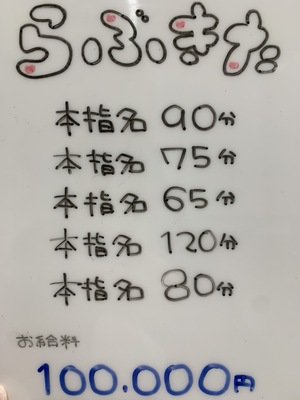 らぶきた
本指名 90分
本指名 75分
本指名 65分
本指名 120分
本指名 80分
お給料
100.000円